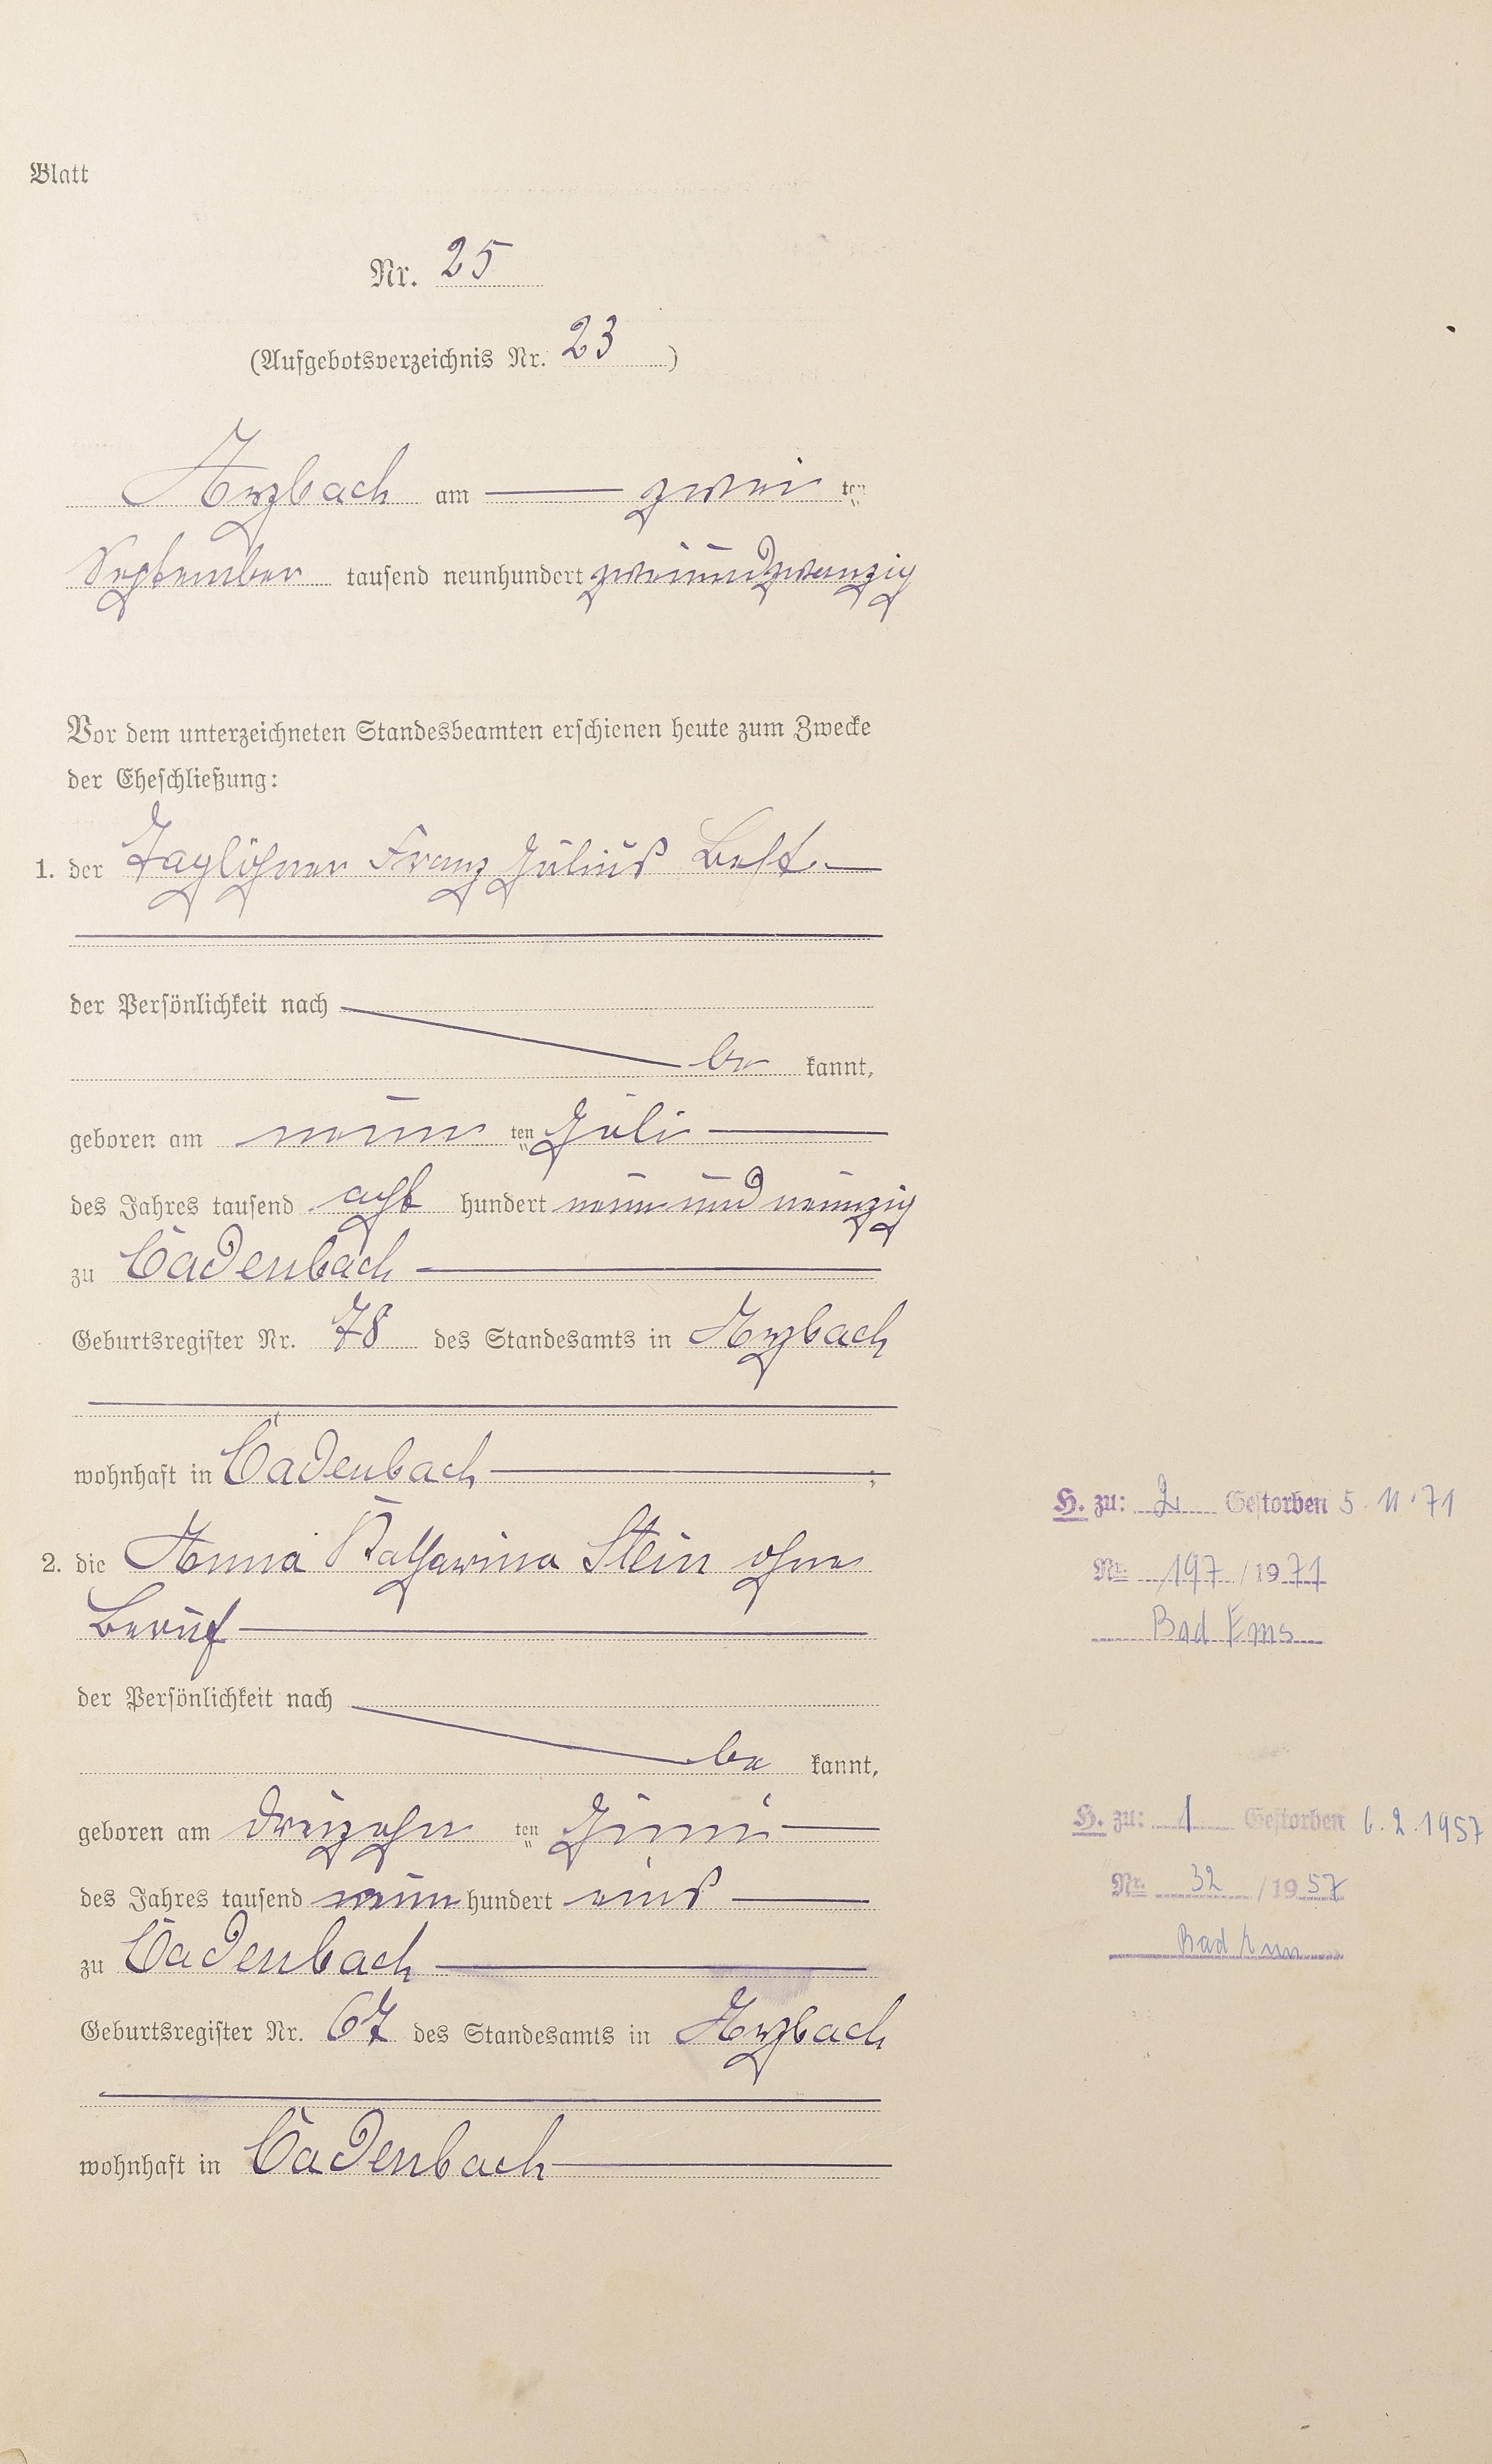 Blatt
Nr. 25
(Aufgebotsverzeichnis Nr. 23)
Arzbach am — zwei ten
September tausend neunhundert zweiundzwanzig
Vor dem unterzeichneten Standesbeamten erschienen heute zum Zwecke
der Eheschließung:
1. der Taglöhner Franz Julius Best. —
der Persönlichkeit nach
be kannt,
geboren am neun ten Juli —
des Jahres tausend acht hundert neun und neunzig
zu Cadenbach —
Geburtsregister Nr. 78 des Standesamts in Arzbach
wohnhaft in Cadenbach — ;
2. die Anna Katharina Stein ohne
Beruf —
der Persönlichkeit nach
be kannt,
geboren am dreizehn ten Juni —
des Jahres tausend neun hundert eins —
zu Cadenbach —
Geburtsregister Nr. 67 des Standesamts in Arzbach
wohnhaft in Cadenbach —
H. zu: 2 Gestorben 5.11.71
Nr. 197 / 1971
Bad Ems
H. zu: 1 Gestorben 6.2.1957
Nr. 32 / 1957
Bad Ems